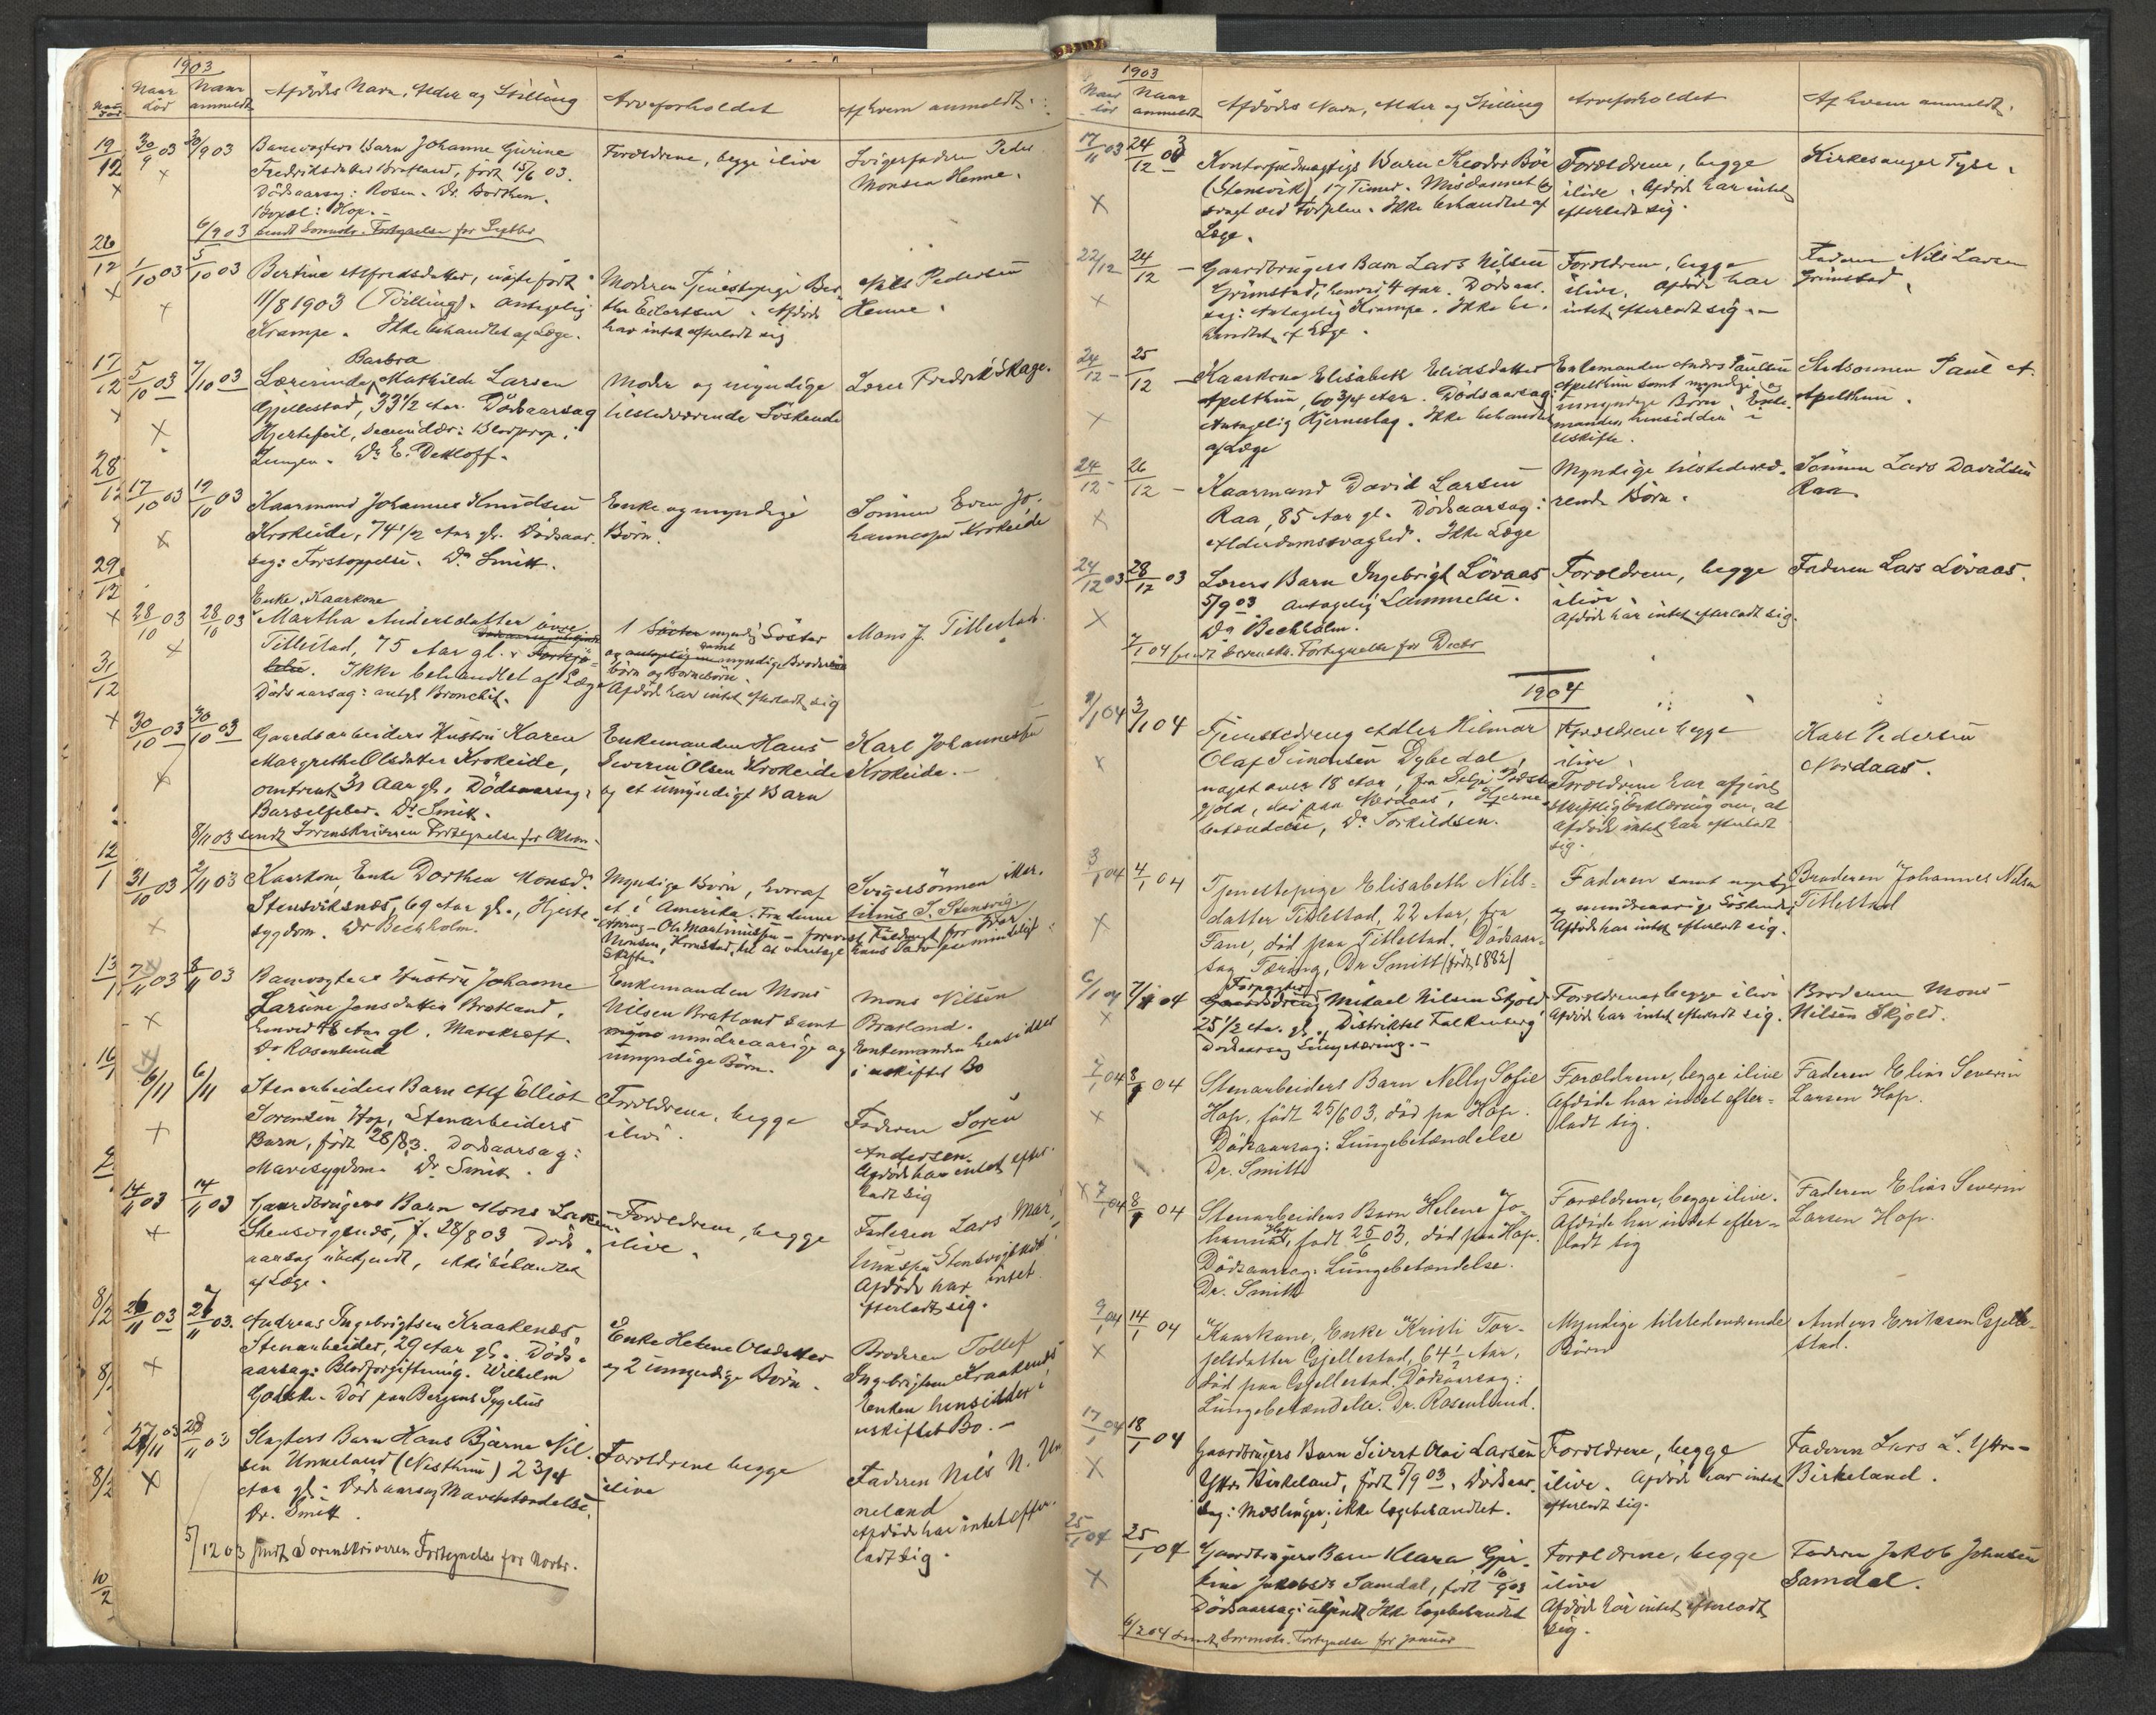 1903
Naar død
Naar anmeldt
Afdødes Navn, Alder og Stilling
Arveforholdet
Af hvem anmeldt
30/9 03
30/9 03
Banevogters Barn Johanne Gurine
Fredriksdatter Bratland, født 15/6 03.
Dødsaarsag: Rosen. Dr. Borthen.
Bopæl: Hop.
Forældrene, begge ilive
Svigerfaderen Peder
Monsen Henne.
6/9 03 sendt Sorenskr. Fortegnelse for Septbr
1/10 03
5/10 03
Bertine Alfredsdatter, uægte født
11/8 1903 (Tvilling). Antagelig
Krampe. Ikke behandlet af Læge.
Moderen Tjenestepige Ber-
tha Eilertsen. Afdøde
har intet efterladt sig
Nils Pedersen
Henne.
17/12
5/10 03
7/10 03
Barbra
Lærerinde Mathilde Larsen
Gjellestad, 33 1/2 Aar. Dødsaarsag
Hjertefeil, secundær: Blodprop i
Lungen. Dr. E. Detloff.
Moder og myndige
tilstedeværende Søskende
Lærer Fredrik Skage.
28/12
17/10 03
19/10 03
Kaarmand Johannes Knudsen
Krokeide, 74 1/2 Aar gl. Dødsaar-
sag: Forstoppelse. Dr. Smitt.
Enke og myndige
Børn.
Sønnen Even Jo-
hannesen Krokeide
29/12
28/10 03
28/10 03
Enke, Kaarkone
Martha Andersdatter øvre
Titlestad, 75 Aar gl.
Ikke behandlet af Læge
Dødsaarsag: antgl Bronchit.
1 myndig Søster
samt
og myndige Broder
børn og Børnebørn.
Afdøde har intet efterladt sig
Mons J. Titlestad.
31/12
30/10 03
30/10 03
Gaardsarbeiders Hustru Karen
Margrethe Olsdatter Krokeide,
omtrent 31 Aar gl. Dødsaarsag:
Barselfeber. Dr. Smitt.
Enkemanden Hans
Severin Olsen Krokeide
og et umyndigt Barn
Karl Johannesen
Krokeide.
8/11 03 sendt Sorenskriveren Fortegnelse for Oktbr.
12/1
31/10 03
2/11 03
Kaarkone, Enke Dorthea Monsd.
Stensviksnæs, 69 Aar gl., Hjerte-
sygdom. Dr Bechholm.
Myndige Børn, hvoraf
et i Amerika. Fra denne
Skifte.
Svigersønnen Mar-
tinus J. Stensvig
13/1
7/11 03
8/11 03
Banevogters Hustru Johanne
Larsine Jensdatter Bratland,
henved 48 Aar gl. Mavekræft.
Dr Rosenlund
Enkemanden Mons
Nilsen Bratland samt
mindreaarige og
umyndige Børn.
Mons Nilsen
Bratland.
Enkemanden hensidder
i uskiftet Bo
16/1
6/11
6/11
Stenarbeiders Barn Alf Elliot
Sørensen Hop, Stenarbeiders
Barn, født 28/8 3. Dødsaarsag:
Mavesygdom. Dr. Smitt.
Forældrene, begge
ilive.
Faderen Søren
Andersen.
Afdøde har intet efter-
ladt sig
14/11 03
14/11 03
Gaardbrugers Barn Mons Larsen
Stensvignæs, f. 28/8 03 Døds-
aarsag ubekjendt, ikke behandlet
af Læge.
Forældrene, begge
ilive.
Faderen Lars Mar-
tinusen Stensvignæs
Afdøde har intet
efterladt sig.
8/2
26/11 03
27/11 03.
Andreas Ingebrigtsen Kraakenes,
Stenarbeider, 29 Aar gl. Døds-
aarsag: Blodforgiftning. Wilhelm
Død paa Bergens Sygehus
Enke Helene Olsdatter
og 2 umyndige Børn.
Broderen Tollef
Ingebrigtsen Kraakenes
Enken hensidder i
uskiftet Bo.
27/11 03
28/11 03
Slagters Barn Hans Bjarne Nil-
sen Unneland (Nesttun) 2 3/4
Aar gl. Dødsaarsag Mavebetændelse.
Dr. Smitt.
Forældrene begge
ilive
Faderen Nils N. Un-
neland
Afdøde har intet efter-
ladt sig.
5/12 03 sendt Sorenskriveren Fortegnelse for Novbr.
10/2
1903
Naar død
Naar anmeldt
Afdødes Navn, Alder og Stilling
Arveforholdet
Af hvem anmeldt.
17/11 03
24/12 03
Kontorfuldmægtigs Barn Theodor Bøe
(Stensvik), 17 Timer. Misdannet og
svagt ved Fødselen. Ikke behandlet af
Læge.
Forældrene, begge
ilive. Afdøde har intet
efterladt sig.
Kirkesanger Tyse.
22/12
24/12
Gaardbrugers Barn Lars Nilsen
Grimstad, henved 4 Aar. Dødsaar-
sag: Antagelig Krampe. Ikke be-
handlet af Læge.
Forældrene, begge
ilive. Afdøde har
intet efterladt sig.
Faderen Nils Larsen
Grimstad.
24/12
25/12
Kaarkone Elisabeth Eliasdatter
Apelthun, 60 3/4 Aar. Dødsaarsag
Antagelig Hjerneslag. Ikke behandlet
af Læge
Enkemanden Anders Paulsen
Apelthun samt myndige og
umyndige Børn. Enke-
manden hensidder i
uskifte.
Stedsønnen Paul A.
Apelthun.
24/12
26/12
Kaarmand David Larsen
Raa, 85 Aar gl. Dødsaarsag:
Alderdomssvaghed. Ikke Læge
Myndige tilstedevæ-
rende Børn.
Sønnen Lars Davidsen
Raa.
24/12 03
28/12 03
Lærers Barn Ingebrigt Løvaas
5/9 03 Antagelig Lammelse.
Dr. Bechholm.
Forældrene, begge
ilive.
Afdøde har intet efterladt sig.
Faderen Lars Løvaas.
7/1 04 sendt Sorenskr. Fortegnelse for Decbr
1904
3/1 04
Tjenestedreng Adler Hilmar
Olaf Simonsen Dybedal
noget over 18 Aar, fra Selje Præste-
gjeld, død paa Nordaas, Hjerne-
betændelse, Dr. Torkildsen.
Forældrene begge
ilive.
Forældrene har afgivet
skriftlig Erklæring om, at
Afdøde intet har efterladt
sig.
Karl Pedersen
Nordaas.
3/1 04
4/1 04
Tjenestepige Elisabeth Nils-
datter Titlestad, 22 Aar, fra
Fane, død paa Titlestad. Dødsaar-
sag Tæring, Dr Smitt (født 1882)
Faderen samt myndige
og mindreaarige Søskende
Afdøde har intet efterladt sig.
Broderen Johannes Nilsen
Titlestad
6/1 04
7/1 04
Forpagter
Mikael Nilsen Skjold
25 1/2 Aar gl., Distriktet Falkenberg
Dødsaarsag Lungetæring.
Forældrene, begge ilive
Afdøde har intet efterladt sig.
Broderen Mons
Nilsen Skjold.
7/1 04
8/1 04
Stenarbeiders Barn Nelly Sofie
Hop, født 25/6 03, død pa Hop.
Dødsaarsag: Lungebetændelse
Dr. Smitt
Forældrene, begge ilive
Afdøde har intet efter-
ladt sig.
Faderen Elias Severin
Larsen Hop.
7/1 04
8/1 04
Stenarbeiders Barn Helene Jo-
hanna Hop, født 25/6 03, død paa Hop.
Dødsaarsag: Lungebetændelse.
Dr. Smitt
Forældrene, begge ilive.
Afdøde har intet efter-
ladt sig
Faderen Elias Severin
Larsen Hop.
9/1 04
14/1 04
Kaarkone, Enke Kristi Tor-
jelsdatter Gjellestad, 64 1/2 Aar,
død paa Gjellestad. Dødsaarsag:
Lungebetændelse. Dr. Rosenlund.
Myndige tilstedeværende
Børn
Anders Eriksen Gjelle-
stad.
17/1 04
18/1 04
Gaardbrugers Barn Sivert Olai Larsen
Ytre Birkeland, født 5/9 03. Dødsaar-
sag: Meslinger, ikke lægebehandlet.
Forældrene, begge
ilive. Afdøde har intet
efterladt sig.
Faderen Lars L. Ytre-
Birkeland.
25/1 04
25/1 04
Gaardbrugers Barn Klara Gju-
rine Jakobsdr Samdal, født 10/9 03
Dødsaarsag: ukjendt Ikke lægebehandlet
Forældrene, begge
ilive
Afdøde har intet efterladt
sig.
Faderen Jakob Johnsen
Samdal.
6/2 04 sendt Sorenskr. Fortegnelse for Januar